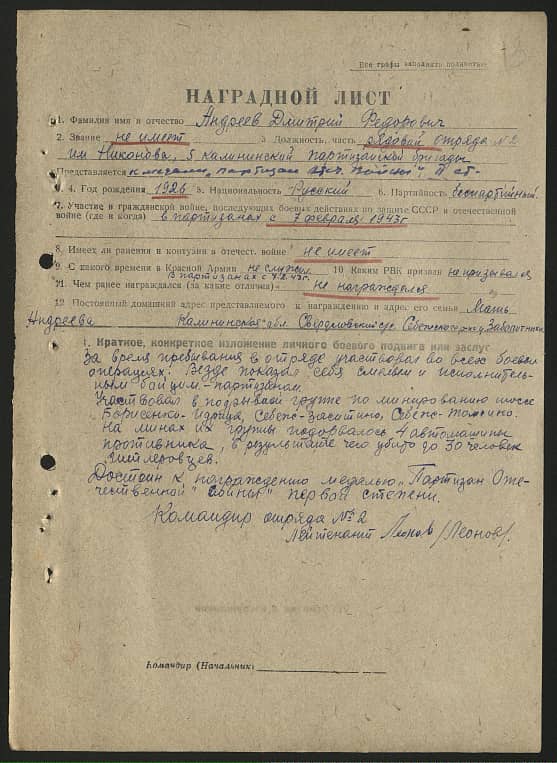 Все графы заполнять полностью
НАГРАДНОЙ ЛИСТ
1. Фамилия имя и отчество Андреев Дмитрий Федорович
2. Звание не имеет 3 Должность, часть рядовой отряда №2
им Никонова, 5 калининской партизанской бригады
Представляется к медали, партизан отеч. войны" II ст.
4. Год рождения 1926 5. Национальность Русский 6. Партийность беспартийный.
7. Участие в гражданской войне, последующих боевых действиях по защите СССР и отечественной
войне (где и когда) в партизанах с 7 февраля 1943г
8. Имеет ли ранения и контузии в отечест. войне не имеет
9 С какого времени в Красной Армии не служил 10 Каким РВК призван не призывался
в партизанах с 7.2.43г.
11. Чем ранее награждался (за какие отличия) не награждался
12 Постоянный домашний адрес представляемого к награждению и адрес его семьи Мать
Андреева Калининская обл. Себежского
1. Краткое, конкретное изложение личного боевого подвига или заслуг
За время пребывания в отряде участвовал во всех боевых
операциях. Везде показал себя смелым и исполнитель-
ным бойцом-партизаном.
Участвовал в подрывной группе по минированию шоссе
Борисенки-Идрица, Себеж-Заситино, Себеж-
На минах их группы подорвалось 4 автомашины
противника, в результате чего убито до 30 человек
гитлеровцев.
Достоин к награждению медалью "Партизан Оте-
чественной войны" первой степени.
Командир отряда №2
Лейтенант Леонов /Леонов/.
Командир (Начальник)